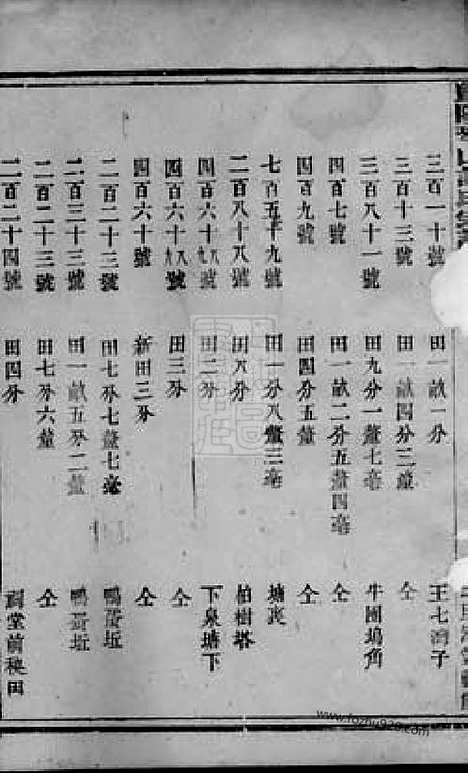 三百一十號 田一畝一分 王七灣子
三百十三號 田一畝四分二釐 仝
三百八十一號 田九分一釐七毫 牛圈塢角
四百七號 田一畝二分五釐四毫 仝
四百九號 田四分五釐 仝
七百五十九號 田一分八釐三毫 塘衷
二百八十八號 田八分 柏樹塔
四百六十九號 田二分 下泉塘下
四百六十八號 田三分 仝
四百六十號 新田三分 仝
二百二十三號 田七分七釐七毫 鴨蛋坵
二百三十三號 田一畝五分二釐 鴨蛋坵
二百二十三號 田七分六釐 仝
二百二十四號 田四分 祠堂前秧田
www.fozhu920.com